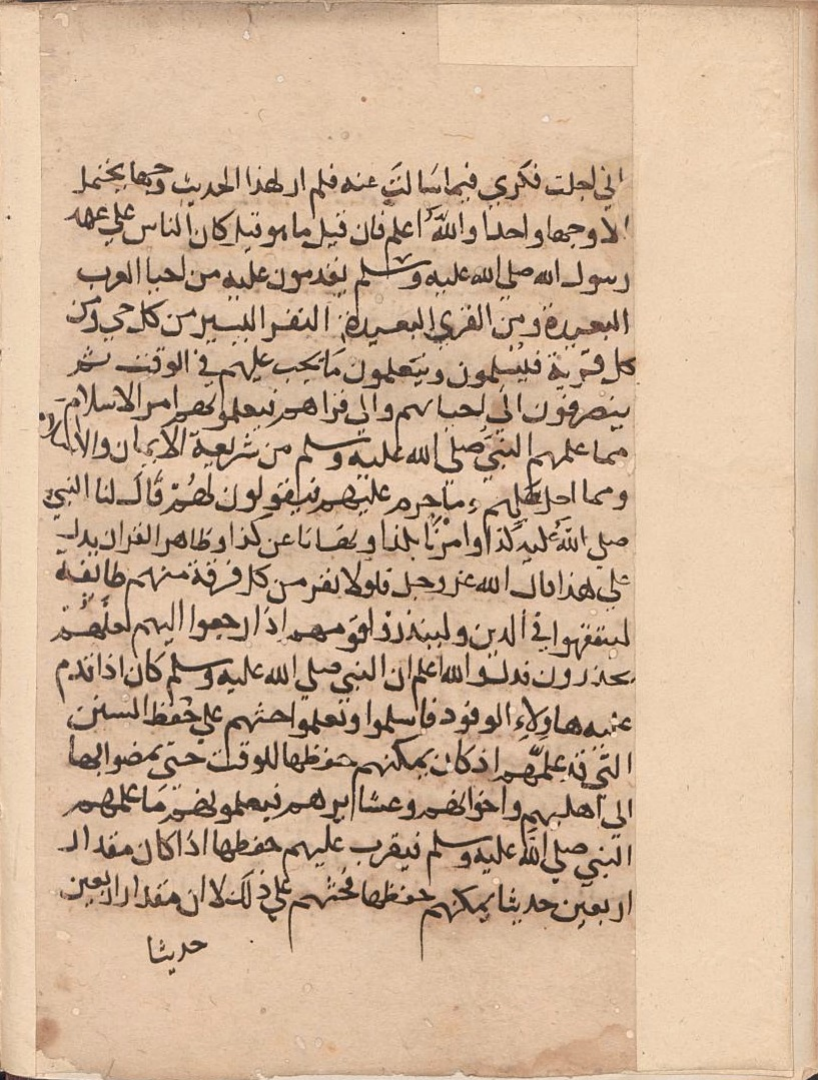 اني اجلت فكري فيما سالت عنه فلم ار لهذا الحديث وجها يحتمل
الا وجها واحدا والله اعلم فان قيل ما هو قيل كان الناس علي عهد
رسول الله صلي الله عليه وسلم يقدمون عليه من احيا العرب
البعيدة ومن القري البعيدة النفر اليسير من كل حي ومن
كل قرية فيسلمون ويتعلمون ما يجب عليهم في الوقت ثم
ينصرفون الي احيايهم والي قراهم فيعلمونهم امر الاسلام
مما علمهم النبي صلي الله عليه وسلم من شريعة الايمان والاسلام
ومما احل لهم وما حرم عليهم فيقولون لهم قال لنا النبي
صلي الله عليه كذا وامرنا بكذا ونهانا عن كذا وظاهر القران يدل
علي هذا قال الله عز وجل فلولا نفر من كل فرقة منهم طايفة
ليتفقهوا في الدين ولينذروا قومهم اذا رجعوا اليهم لعلهم
يحذرون فدل والله اعلم ان النبي صلي الله عليه وسلم كان اذا قدم
عليه هاولاء الوفود فاسلموا وتعلموا حثهم علي حفظ السنن
التي قد علمهم اذ كان يمكنهم حفظها للوقت حتي يمضوا بها
الي اهليهم واخوانهم وعشايرهم فيعلمونهم ما علمهم
النبي صلي الله عليه وسلم فيقرب عليهم حفظها اذا كان مقدار
اربعين حديثا يمكنهم حفظها فحثهم علي ذلك لان مقدار اربعين
حديثا